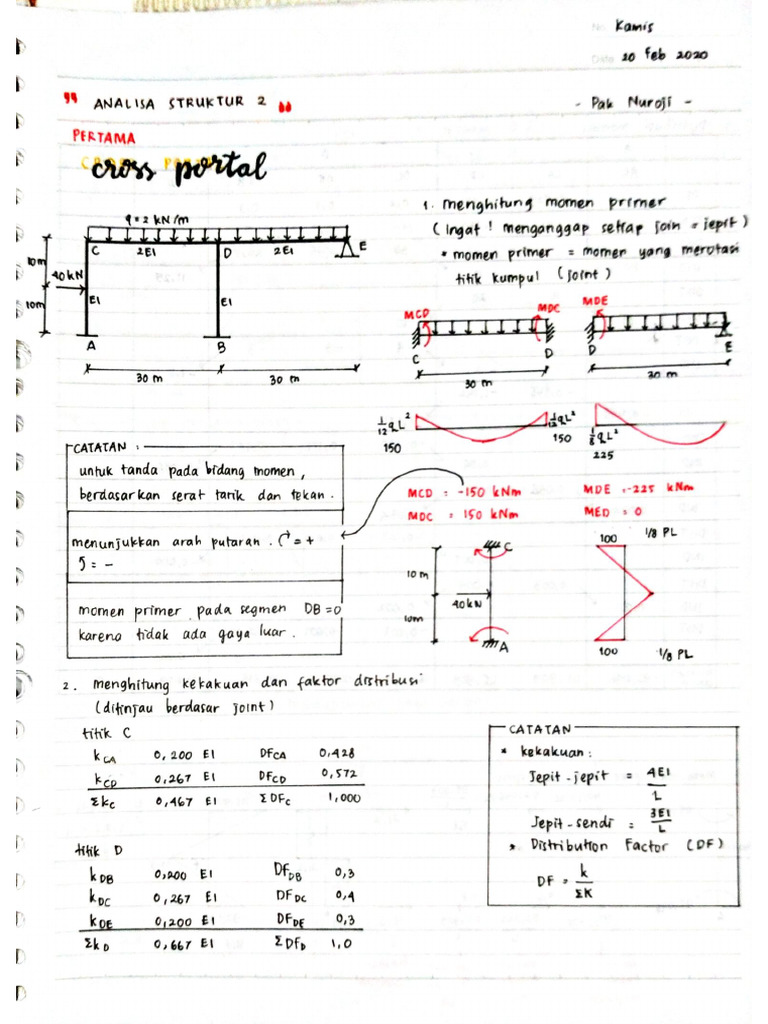 No. Kamis
Date 20 feb 2020
" ANALISA STRUKTUR 2 "
- Pak Nuroji -
PERTAMA
cross portal
q = 2 kN/m
C 2EI D 2EI E
10m
40 kN
EI EI
10m
A B
30 m 30 m
1. menghitung momen primer
(Ingat! menganggap setiap join = jepit)
* momen primer = momen yang merotasi
titik kumpul (joint)
MCD MDC MDE
C D D E
30 m 30 m
1/12 qL² 1/12 qL² 1/8 qL²
150 150 225
MCD = -150 kNm MDE = -225 kNm
MDC = 150 kNm MED = 0
CATATAN :
untuk tanda pada bidang momen,
berdasarkan serat tarik dan tekan.
menunjukkan arah putaran. ↻ = +
↺ = -
momen primer pada segmen DB = 0
karena tidak ada gaya luar.
C
10 m
40kN
10m
A
100 1/8 PL
100 1/8 PL
2. menghitung kekakuan dan faktor distribusi
(ditinjau berdasar joint)
titik C
kCA 0,200 EI DFCA 0,428
kCD 0,267 EI DFCD 0,572
ΣkC 0,467 EI ΣDFC 1,000
titik D
kDB 0,200 EI DFDB 0,3
kDC 0,267 EI DFDC 0,4
kDE 0,200 EI DFDE 0,3
ΣkD 0,667 EI ΣDFD 1,0
CATATAN
* kekakuan:
Jepit-jepit = 4EI/L
Jepit-sendi = 3EI/L
* Distribution Factor (DF)
DF = k/ΣK